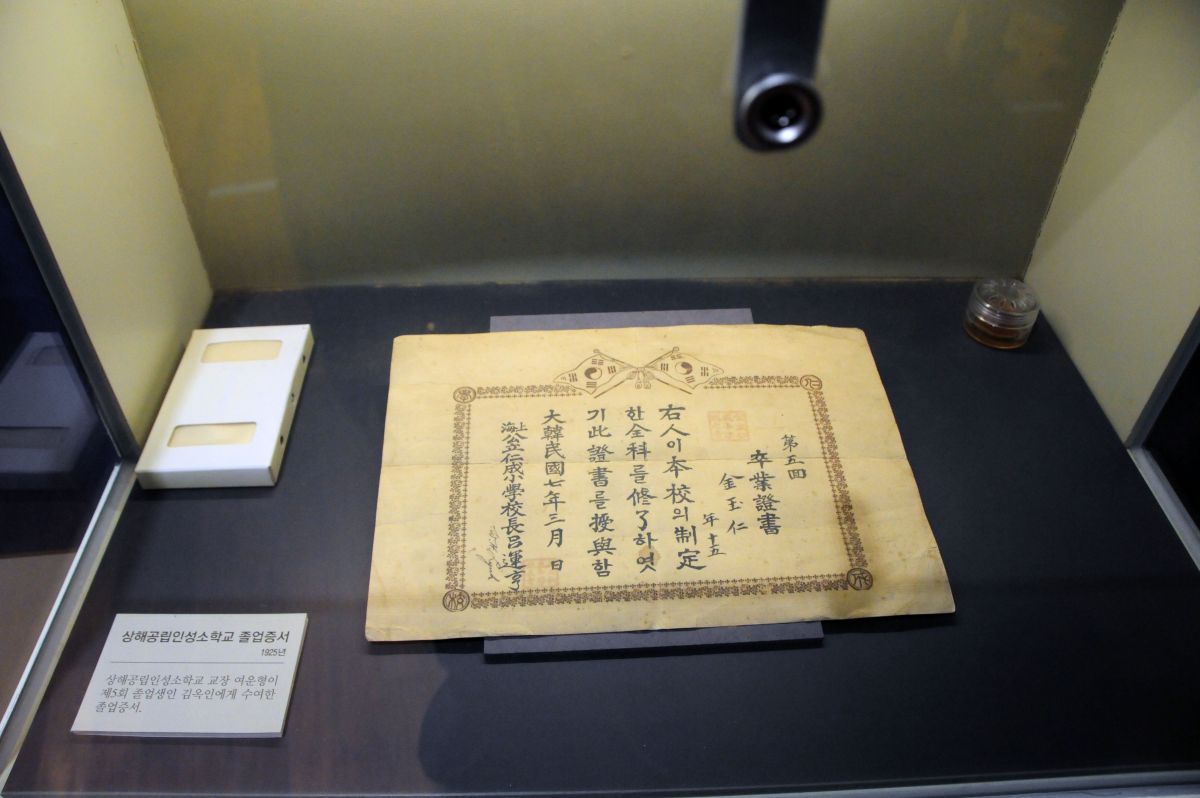 第五回
卒業證書
金玉仁
年十五
右人이本校의制定
한全科를修了하엿
기此證書를授與함
大韓民國七年三月 日
上海公立仁成小學校長呂運亨
상해공립인성소학교 졸업증서
1925년
상해공립인성소학교 교장 여운형이
제5회 졸업생인 김옥인에게 수여한
졸업증서.